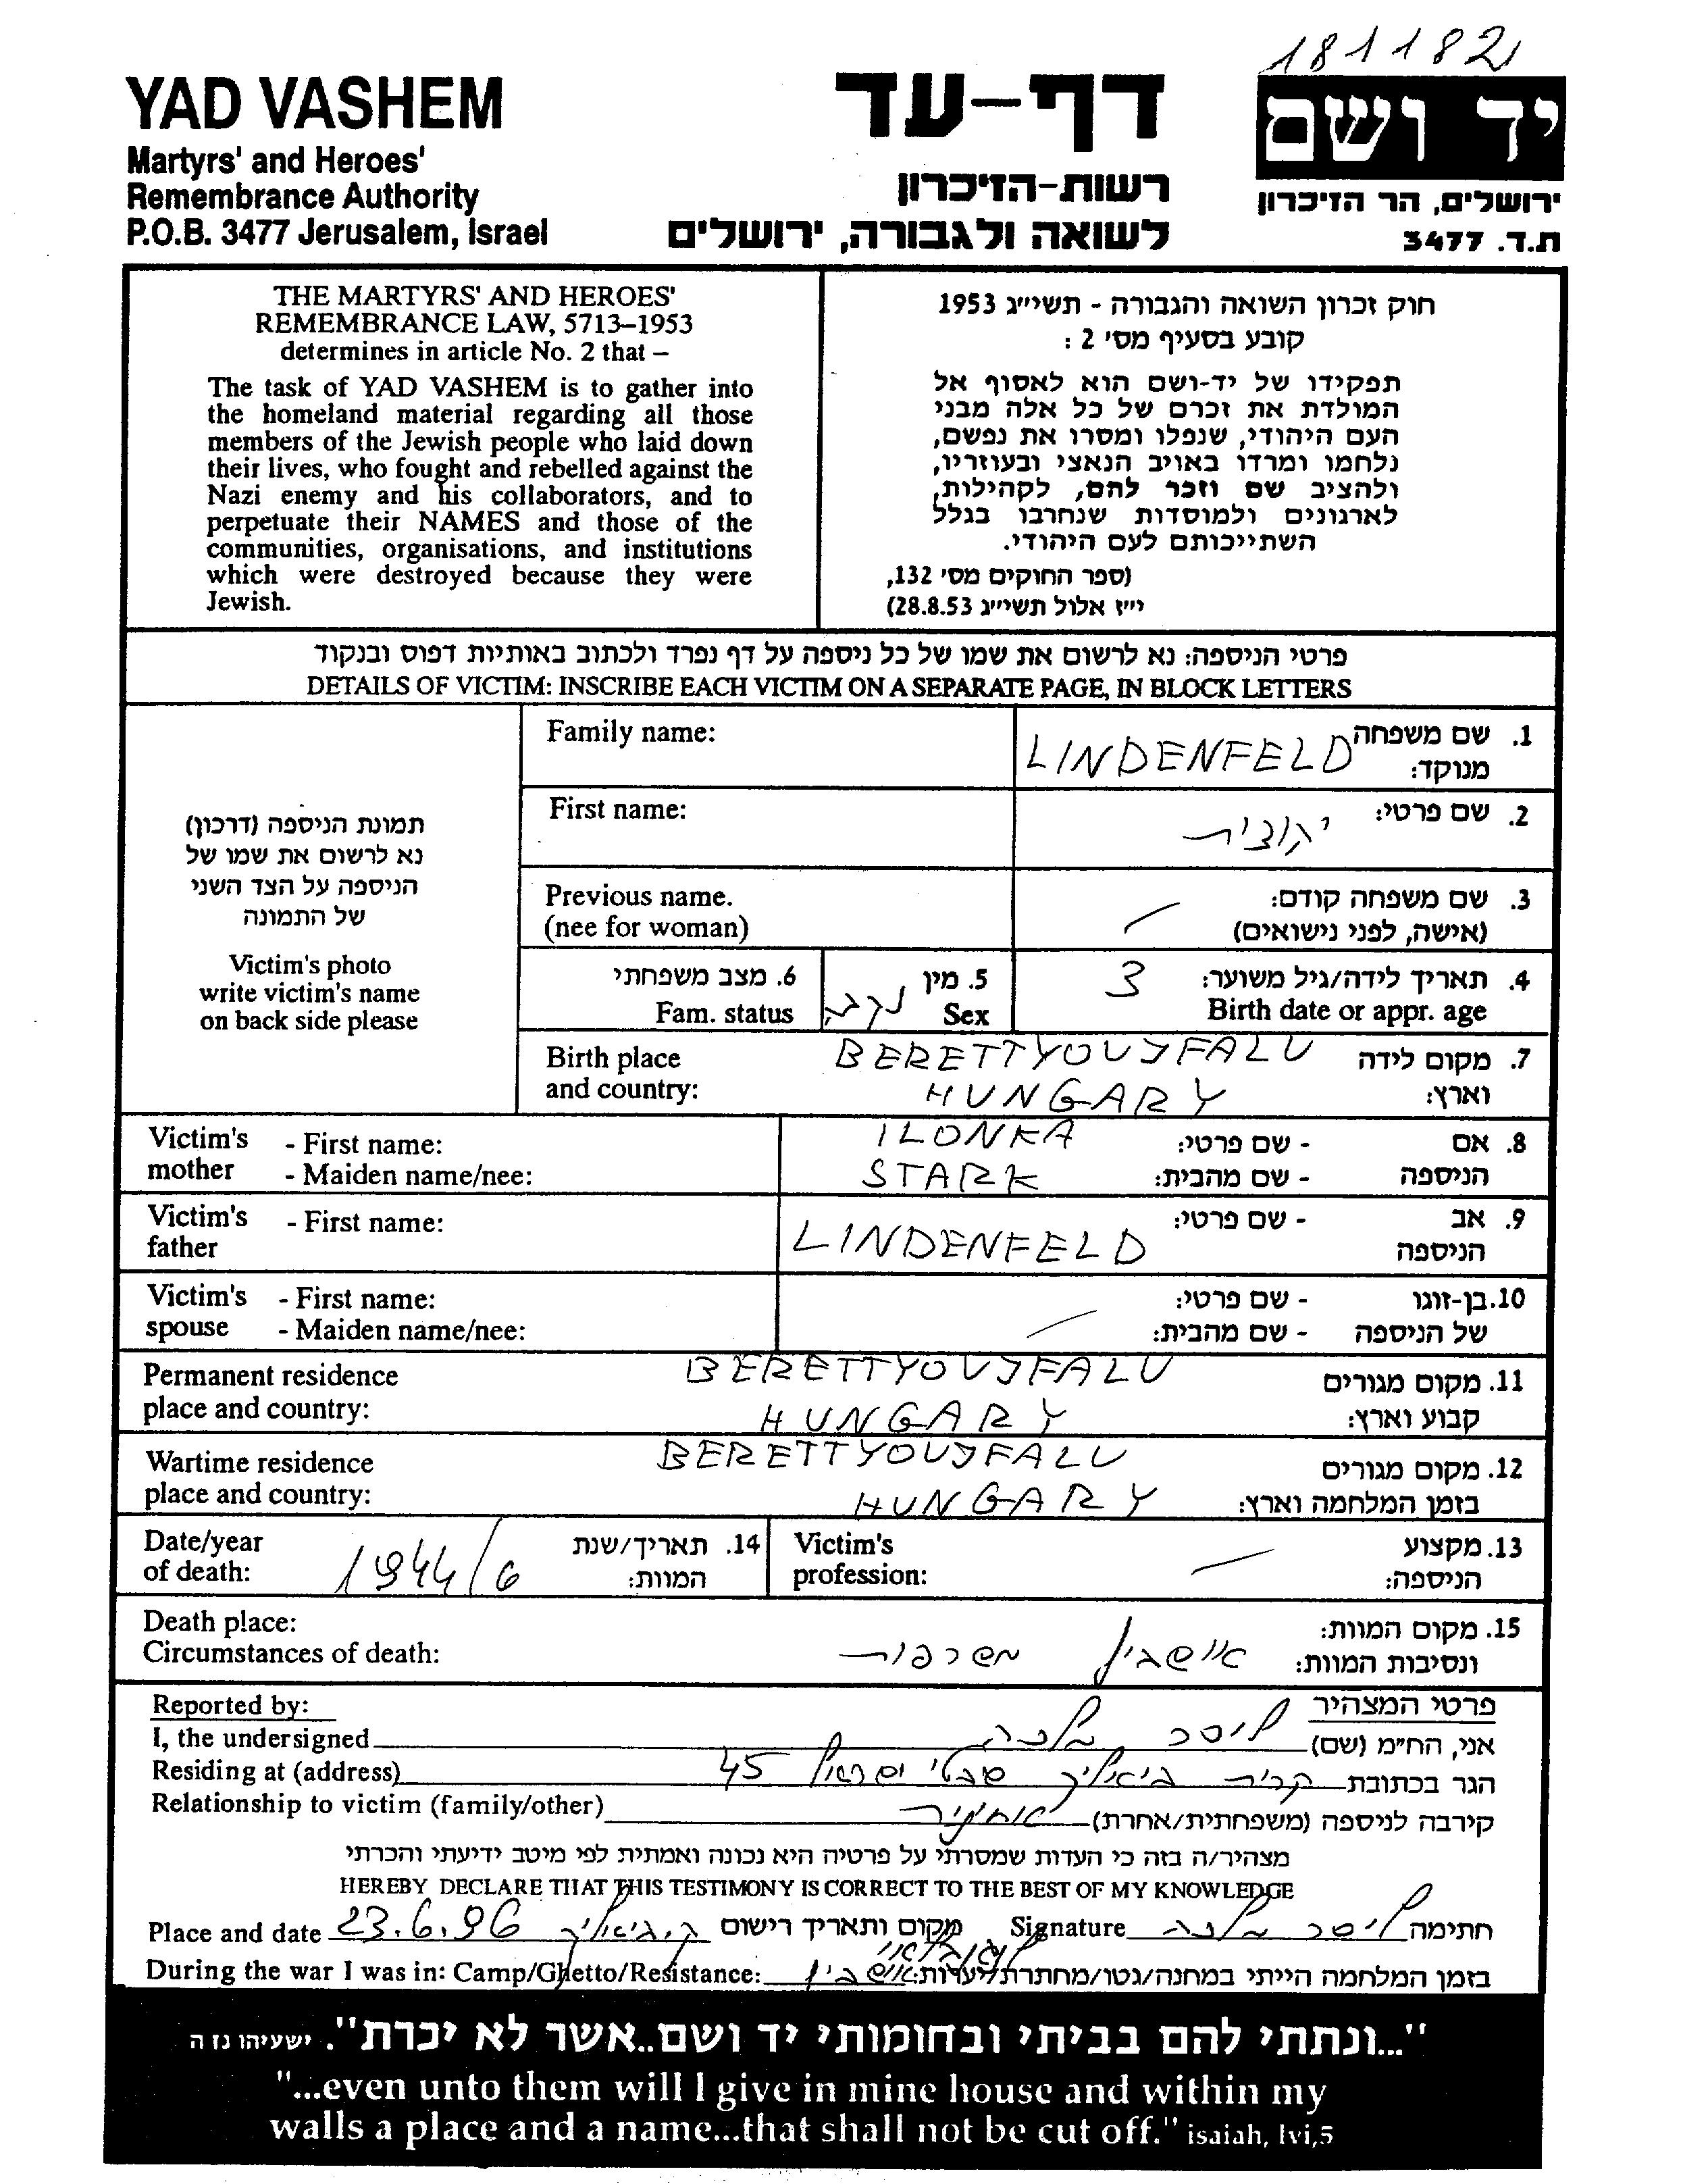 181182
YAD VASHEM
Martyrs' and Heroes'
Remembrance Authority
P.O.B. 3477 Jerusalem, Israel
דף-עד
רשות-הזיכרון
לשואה ולגבורה, ירושלים
יד ושם
ירושלים, הר הזיכרון
ת.ד. 3477
THE MARTYRS' AND HEROES'
REMEMBRANCE LAW, 5713–1953
determines in article No. 2 that –
The task of YAD VASHEM is to gather into
the homeland material regarding all those
members of the Jewish people who laid down
their lives, who fought and rebelled against the
Nazi enemy and his collaborators, and to
perpetuate their NAMES and those of the
communities, organisations, and institutions
which were destroyed because they were
Jewish.
חוק זכרון השואה והגבורה - תשי״ג 1953
קובע בסעיף מס' 2 :
תפקידו של יד-ושם הוא לאסוף אל
המולדת את זכרם של כל אלה מבני
העם היהודי, שנפלו ומסרו את נפשם,
נלחמו ומרדו באויב הנאצי ובעוזריו,
ולהציב שם וזכר להם, לקהילות,
לארגונים ולמוסדות שנחרבו בגלל
השתייכותם לעם היהודי.
(ספר החוקים מס' 132,
י״ז אלול תשי״ג 28.8.53)
פרטי הניספה: נא לרשום את שמו של כל ניספה על דף נפרד ולכתוב באותיות דפוס ובנקוד
DETAILS OF VICTIM: INSCRIBE EACH VICTIM ON A SEPARATE PAGE, IN BLOCK LETTERS
תמונת הניספה (דרכון)
נא לרשום את שמו של
הניספה על הצד השני
של התמונה
Victim's photo
write victim's name
on back side please
Family name: LINDENFELD 1. שם משפחה
מנוקד:
First name: יהודית 2. שם פרטי:
Previous name. 3. שם משפחה קודם:
(nee for woman) (אישה, לפני נישואים)
6. מצב משפחתי 5. מין נקבה 3 4. תאריך לידה/גיל משוער:
Fam. status Sex Birth date or appr. age
Birth place BERETTYOUJFALU 7. מקום לידה
and country: HUNGARY וארץ:
Victim's - First name: ILONKA - שם פרטי: 8. אם
mother - Maiden name/nee: STARK - שם מהבית: הניספה
Victim's - First name: LINDENFELD - שם פרטי: 9. אב
father הניספה
Victim's - First name: - שם פרטי: 10. בן-זוגו
spouse - Maiden name/nee: - שם מהבית: של הניספה
Permanent residence BERETTYOUJFALU 11. מקום מגורים
place and country: HUNGARY קבוע וארץ:
Wartime residence BERETTYOUJFALU 12. מקום מגורים
place and country: HUNGARY בזמן המלחמה וארץ:
Date/year 1944/6 14. תאריך/שנת Victim's 13. מקצוע
of death: המוות: profession: הניספה:
Death place: 15. מקום המוות:
Circumstances of death: אושביץ משרפות ונסיבות המוות:
Reported by: פרטי המצהיר
I, the undersigned אני, הח״מ (שם)
Residing at (address) הגר בכתובת קרית ביאליק שבטי ישראל 45
Relationship to victim (family/other) קירבה לניספה (משפחתית/אחרת) אחינית
מצהיר/ה בזה כי העדות שמסרתי על פרטיה היא נכונה ואמתית לפי מיטב ידיעתי והכרתי
HEREBY DECLARE THAT THIS TESTIMONY IS CORRECT TO THE BEST OF MY KNOWLEDGE
Place and date 23.6.96 ק. ביאליק מקום ותאריך רישום Signature חתימה
During the war I was in: Camp/Ghetto/Resistance: בזמן המלחמה הייתי במחנה/גטו/מחתרת/יערות: אושביץ
"...ונתתי להם בביתי ובחומותי יד ושם..אשר לא יכרת". ישעיהו נז ה
"...even unto them will I give in mine house and within my
walls a place and a name...that shall not be cut off." isaiah, lvi,5